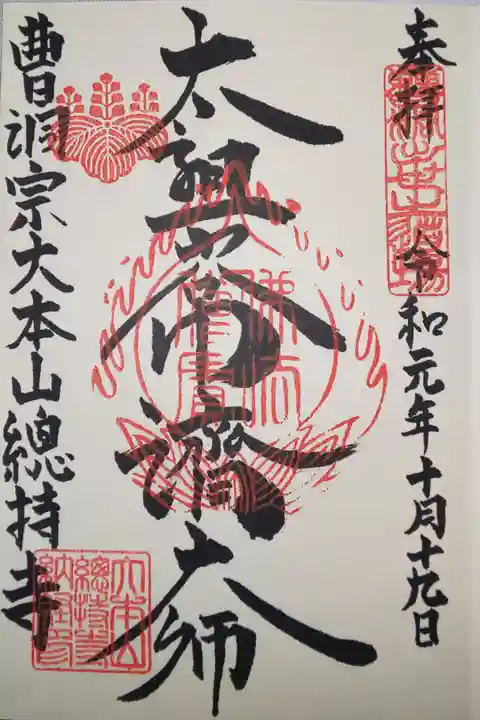 奉拝
令和元年十月十九日
太祖常濟大師
佛法
僧寶
曹洞宗大本山總持寺
大本山
總持寺